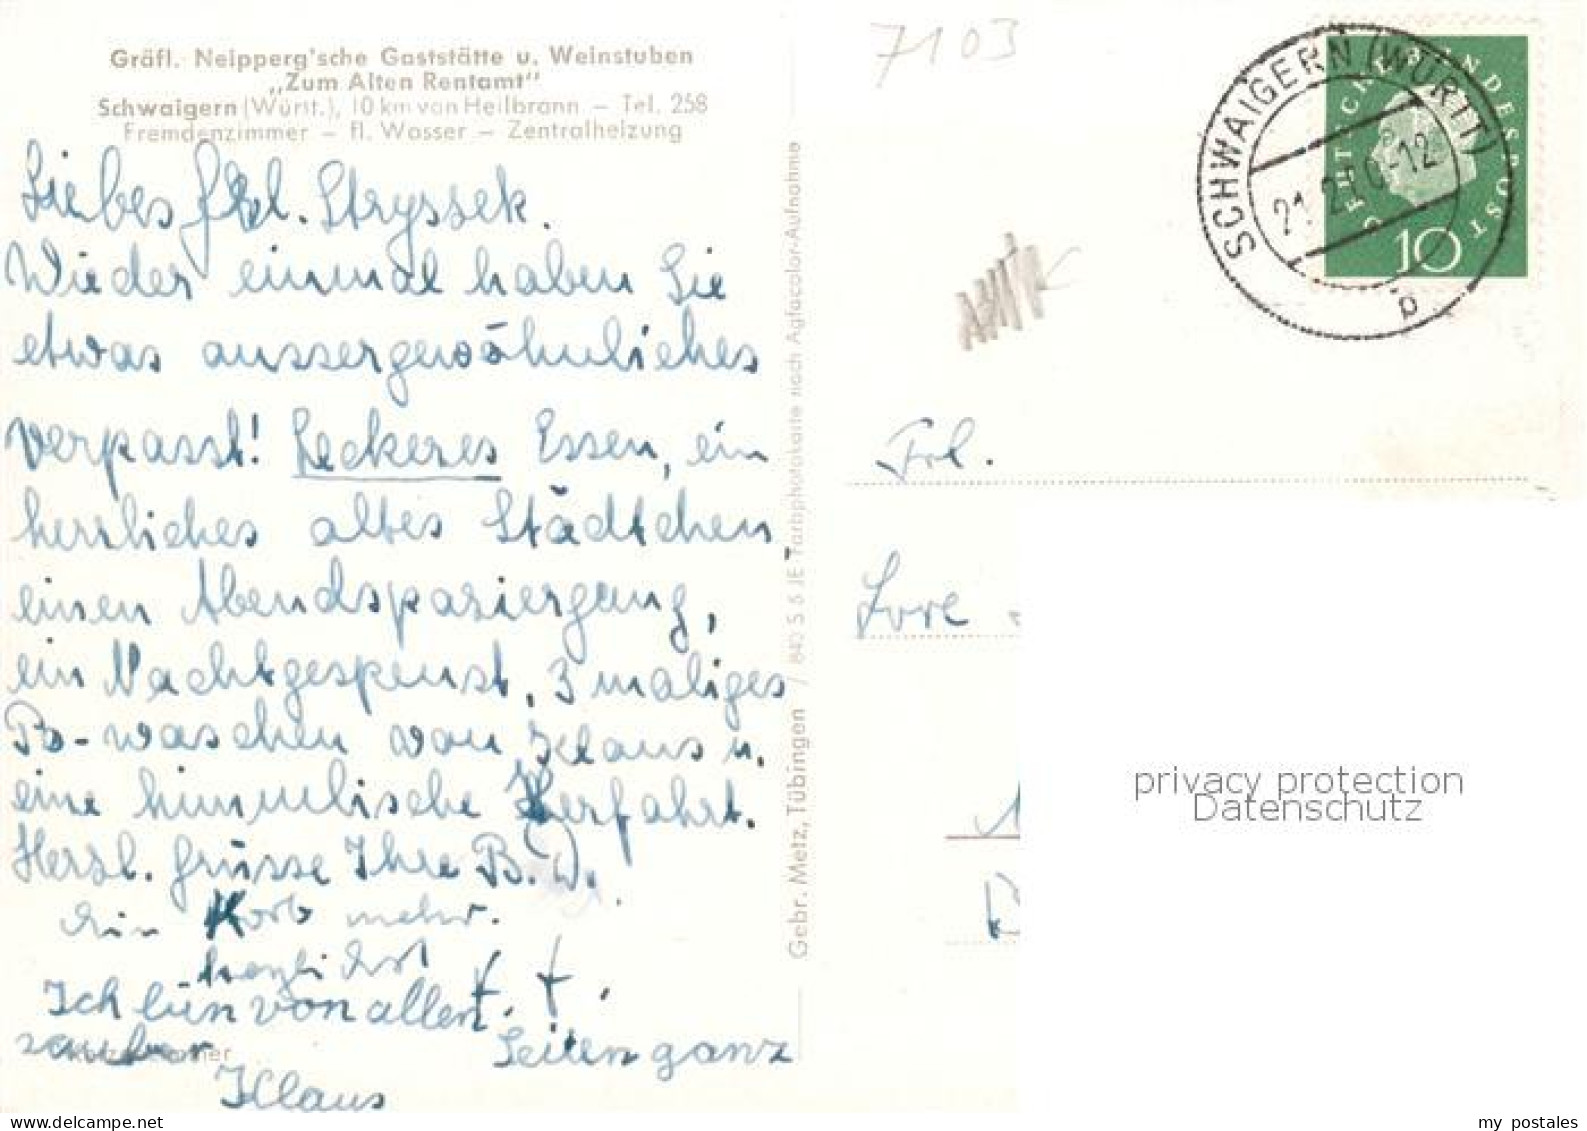 Gräfl. Neipperg'sche Gaststätte u. Weinstuben
„Zum Alten Rentamt"
Schwaigern (Württ.), 10 km von Heilbronn – Tel. 258
Fremdenzimmer – fl. Wasser – Zentralheizung
Liebes Frl. Stryssek.
Wieder einmal haben Sie
etwas aussergewöhnliches
verpasst! Leckeres Essen, ein
herrliches altes Städtchen
einen Abendspaziergang,
ein Nachtgespenst, 3 maliges
Po-waschen von Klaus u.
eine himmlische Herfahrt.
Herzl. Grüsse Ihre B.
Ein Korb mehr.
herzlichst
Ich bin von allen
sauber Seiten ganz
Klaus
Gebr. Metz, Tübingen / 840 S 5 JE Farbphotokarte nach Agfacolor-Aufnahme
7103
SCHWAIGERN (WÜRTT)
21. 2. -12
b
DEUTSCHE BUNDESPOST
10
Frl.
Lore
privacy protection
Datenschutz
my postales